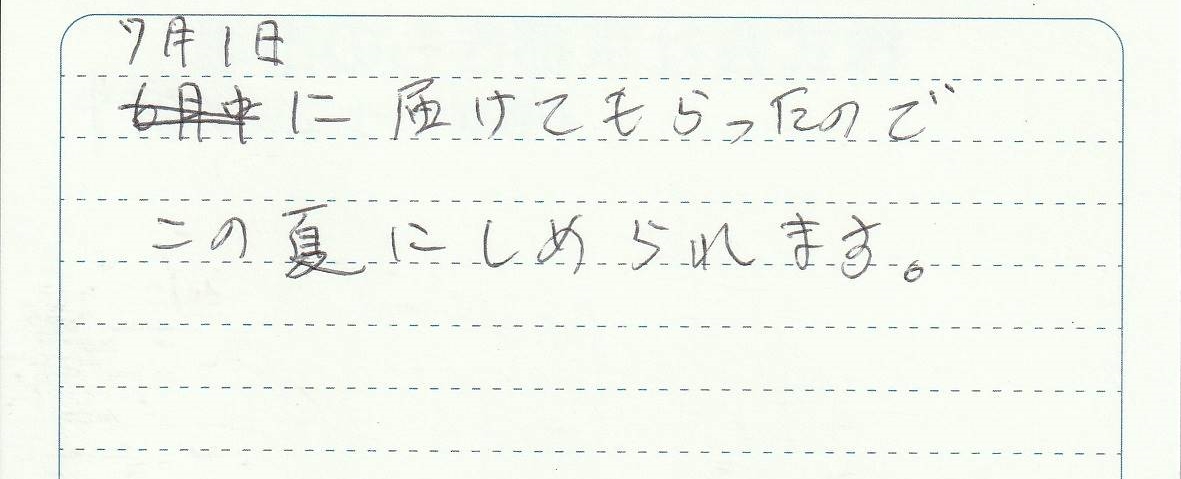 7月1日
6月中に届けてもらったので
この夏にしめられます。